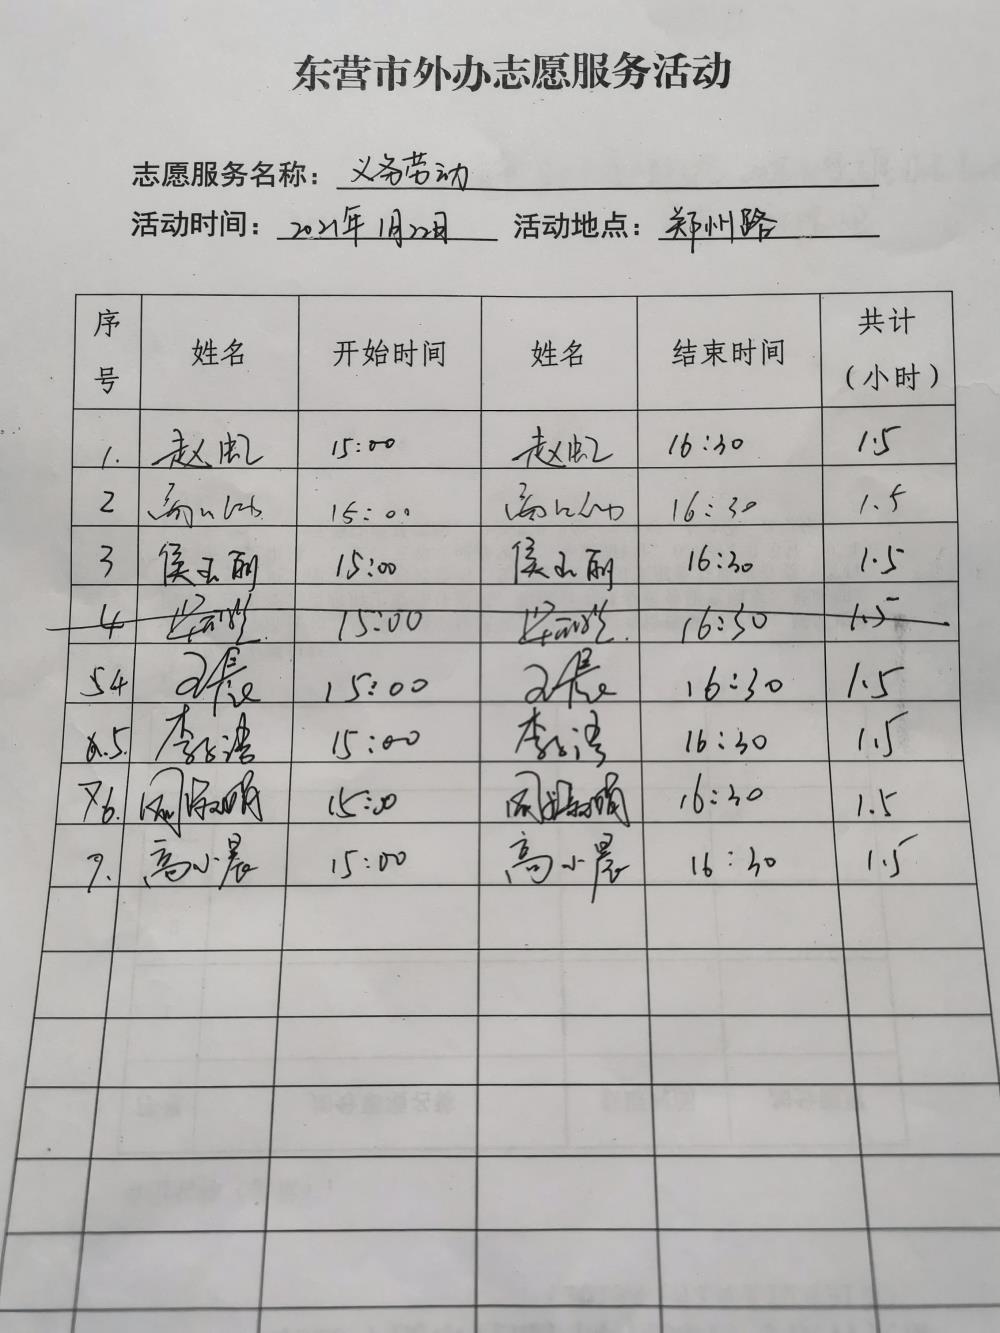 东营市外办志愿服务活动
志愿服务名称：义务劳动
活动时间：2021年1月22日 活动地点：郑州路
序号 姓名 开始时间 姓名 结束时间 共计（小时）
1. 赵虹 15:00 赵虹 16:30 1.5
2 15:00 16:30 1.5
3 侯玉丽 15:00 侯玉丽 16:30 1.5
4 15:00 16:30 1.5
54 15:00 16:30 1.5
6.5. 李 15:00 李 16:30 1.5
76. 15:00 16:30 1.5
7. 高小晨 15:00 高小晨 16:30 1.5